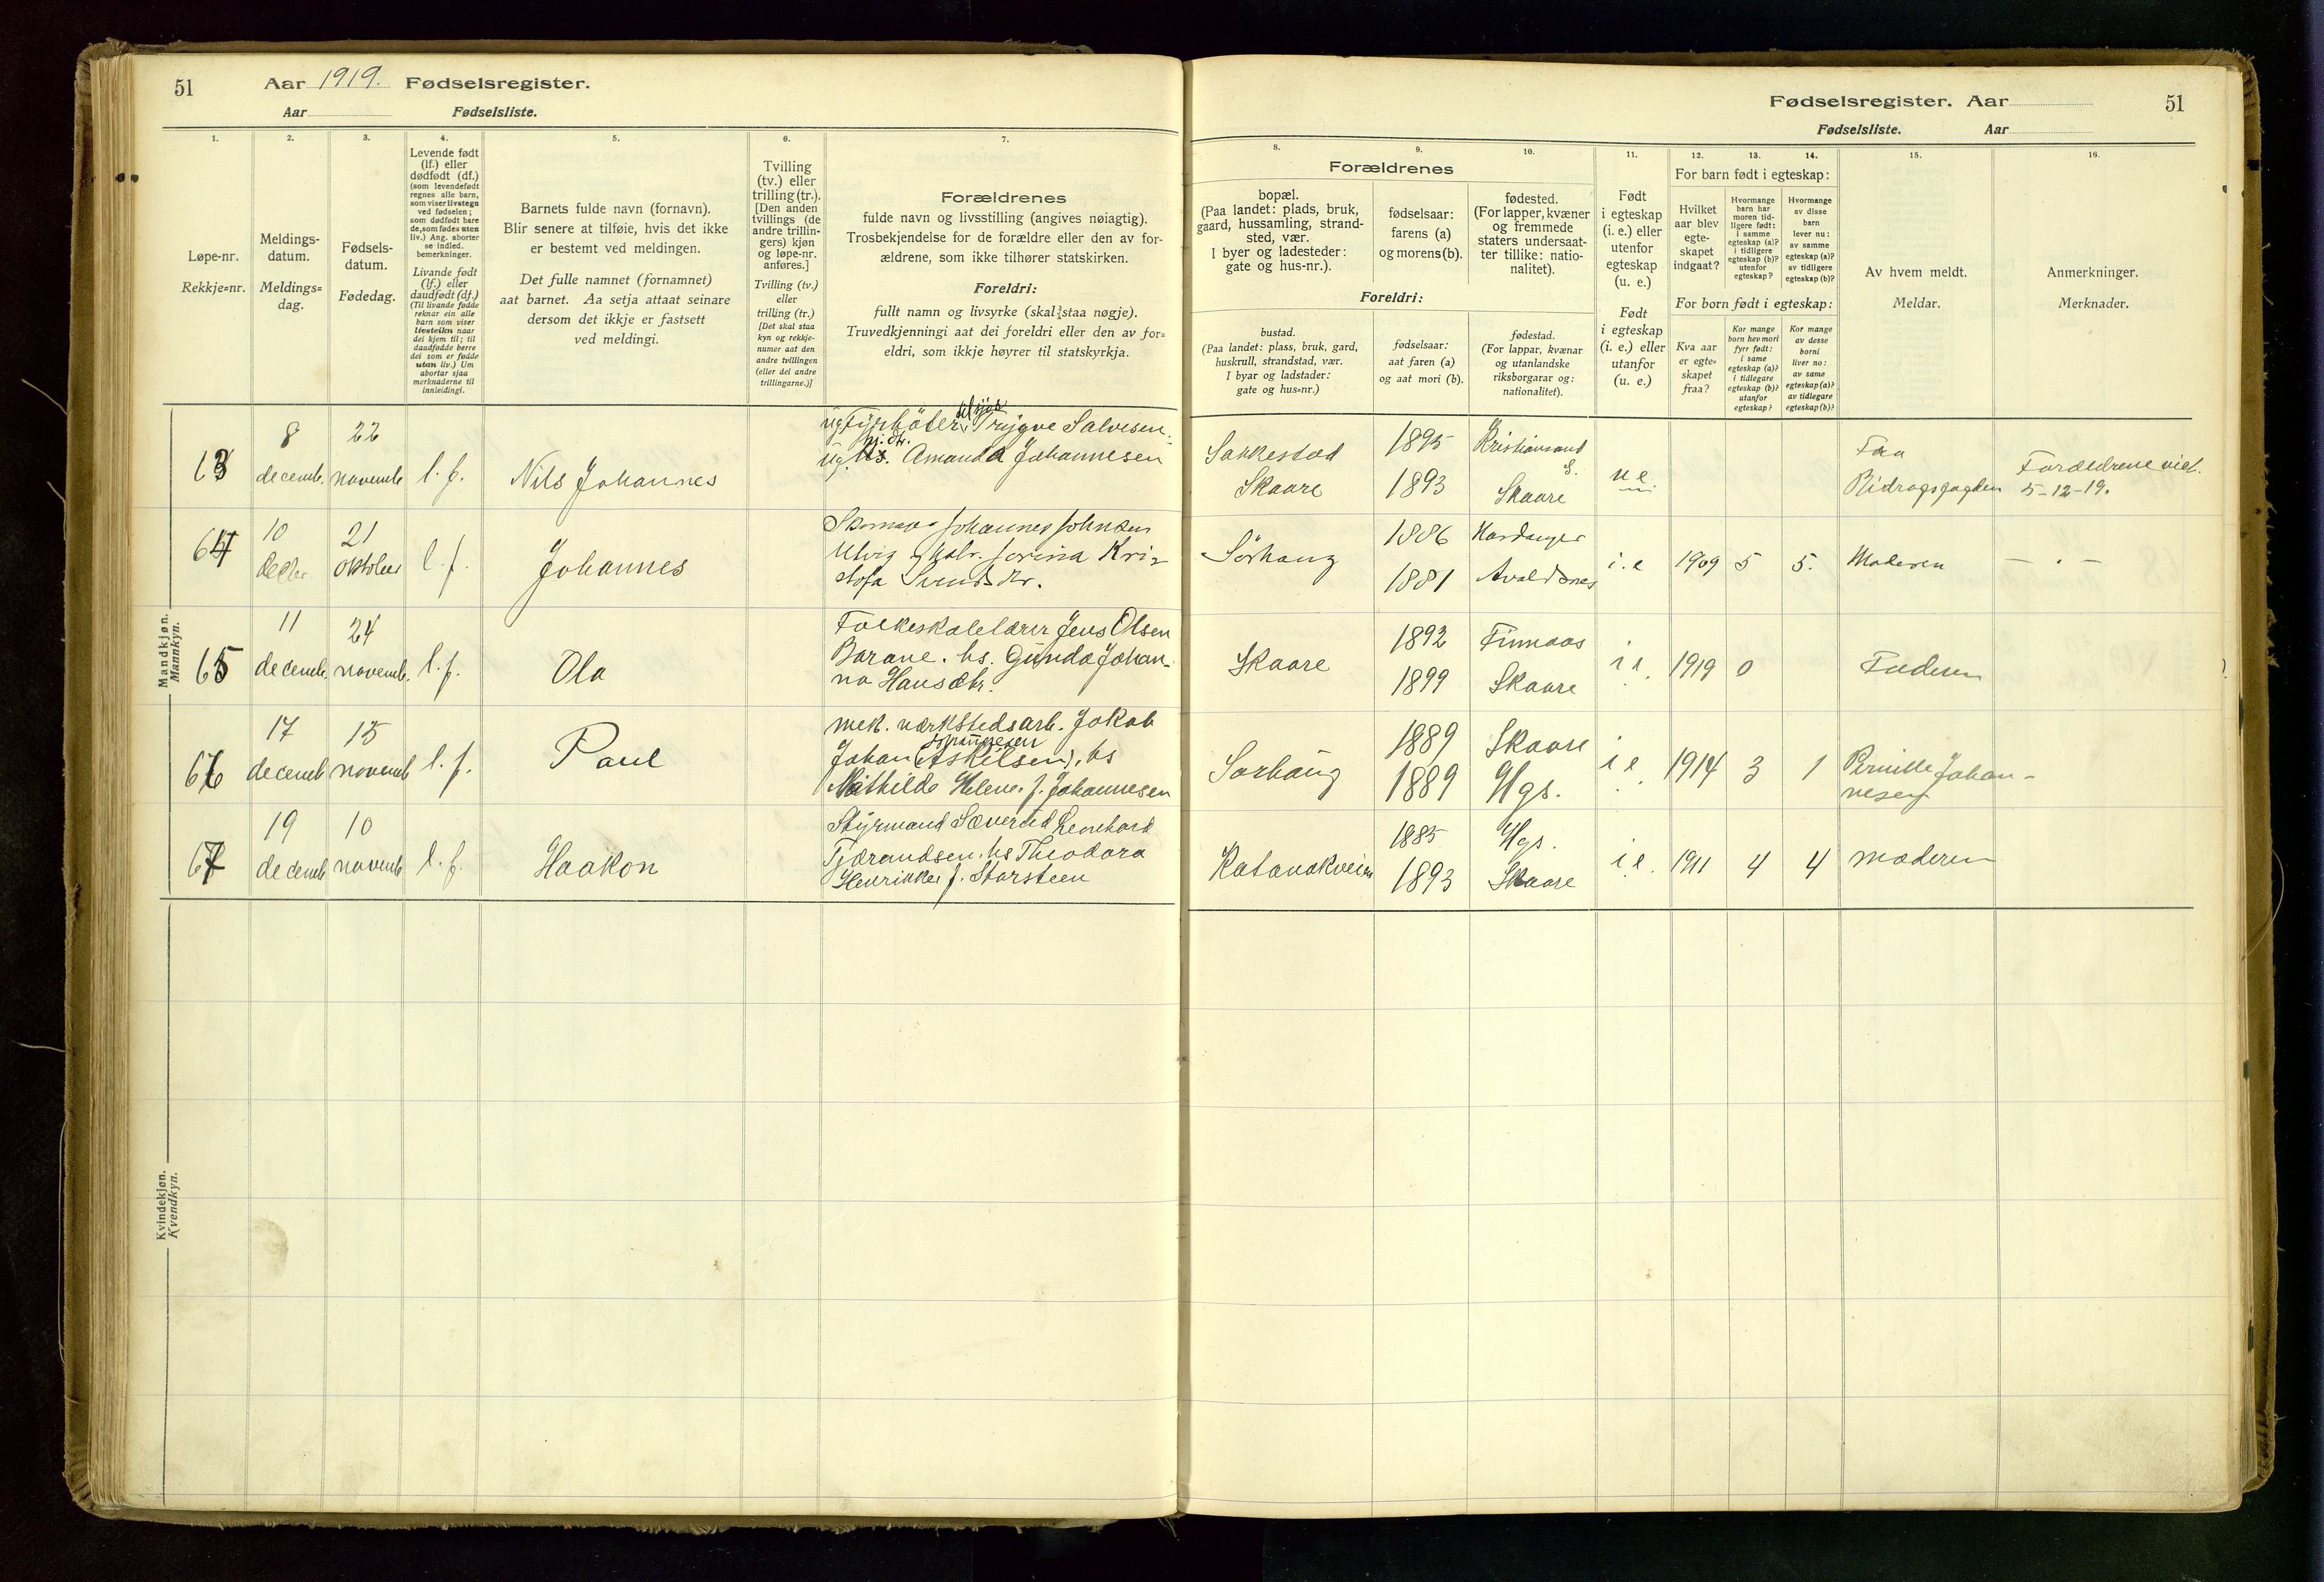 51
Aar 1919. Fødselsregister.
Aar
Fødselsliste.
1.
2.
3.
4.
5.
6.
7.
Løpe-nr.
Rekkje=nr.
Meldings-
datum.
Meldings=
dag.
Fødsels-
datum.
Fødedag.
Levende født
(lf.) eller
dødfødt (df.)
(som levendefødt
regnes alle barn,
som viser livstegn
ved fødselen;
som dødfødt bare
de, som fødes uten
liv.) Ang. aborter
se indled.
bemerkninger.
Livande født
(lf.) eller
daudfødt (df.)
(Til livande fødde
reknar ein alle
barn som viser
livsteikn naar
dei kjem til; til
daudfødde berre
dei som er fødde
utan liv.) Um
abortar sjaa
merknaderne til
innleidingi.
Barnets fulde navn (fornavn).
Blir senere at tilføie, hvis det ikke
er bestemt ved meldingen.
Det fulle namnet (fornamnet)
aat barnet. Aa setja attaat seinare
dersom det ikkje er fastsett
ved meldingi.
Tvilling
(tv.) eller
trilling (tr.).
[Den anden
tvillings (de
andre trillin-
gers) kjøn
og løpe-nr.
anføres.]
Tvilling (tv.)
eller
trilling (tr.)
[Det skal staa
kyn og rekkje-
numer aat den
andre tvillingen
(eller dei andre
trillingarne.)]
Forældrenes
fulde navn og livsstilling (angives nøiagtig).
Trosbekjendelse for de forældre eller den av for-
ældrene, som ikke tilhører statskirken.
Foreldri:
fullt namn og livsyrke (skal staa nøgje).
Truvedkjenningi aat dei foreldri eller den av for=
eldri, som ikkje høyrer til statskyrkja.
Mandkjøn.
Mannkyn.
63
8
decemb.
22
novemb
l. f.
Nils Johannes
ug. Fyrbøter tilsjøs Trygve Salvesen.
ug. hj. dtr. Amanda Johannesen
64
10
decbr
21
oktober
l. f.
Johannes
Skomager Johannes Johnsen
Utvig Kri-
stofa Svends dtr.
65
11
decemb.
24
novemb.
l. f.
Ola
Folkeskolelærer Jens Olsen
Barane. hs. Gunda Johan-
na Hansdtr.
66
17
decemb
15
novemb
l. f.
Paul
mek. værkstedsarb. Jakob
Johannesen
Johan (Askilsen), hs
Mathilde Helene f. Johannesen
67
19
decemb
10
novemb
l. f.
Haakon
Styrmand Severud Leonhard
Tjørandsen. hs Theodora
Henrikke f. Storsteen
Kvindekjøn.
Kvendkyn.
Fødselsregister. Aar
51
Fødselsliste.
Aar
8.
9.
10.
11.
12.
13.
14.
15.
16.
Forældrenes
bopæl.
(Paa landet: plads, bruk,
gaard, hussamling, strand-
sted, vær.
I byer og ladesteder:
gate og hus-nr.).
fødselsaar:
farens (a)
og morens (b).
fødested.
(For lapper, kvæner
og fremmede
staters undersaat-
ter tillike: natio-
nalitet).
Foreldri:
bustad.
(Paa landet: plass, bruk, gard,
huskrull, strandstad, vær.
I byar og ladstader:
gate og hus=nr.)
fødselsaar:
aat faren (a)
og aat mori (b).
fødestad.
(For lappar, kvænar
og utanlandske
riksborgarar og:
nationalitet).
Født
i egteskap
(i. e.) eller
utenfor
egteskap
(u. e.)
Født
i egteskap
(i. e.) eller
utanfor
(u. e.)
For barn født i egteskap:
Hvilket
aar blev
egte-
skapet
indgaat?
Hvormange
barn har
moren tid-
ligere født:
i samme
egteskap (a)?
i tidligere
egteskap (b)?
utenfor
egteskap?
Hvormange
av disse
barn
lever nu:
av samme
egteskap (a)?
av tidligere
egteskap (b)?
For born født i egteskap:
Kva aar
er egte=
skapet
fraa?
Kor mange
born hev mori
fyrr født:
i same
egteskap (a)?
i tidlegare
egteskap (b)?
utanfor
egteskap?
Kor mange
av desse
borni
liver no:
av same
egteskap (a)?
av tidlegare
egteskap (b)?
Av hvem meldt.
Meldar.
Anmerkninger.
Merknader.
Sakkestad
Skaare
1895
1893
Kristiansand
S.
Skaare
u e.
Fra
Bidragsfogden
Forældrene viet.
5-12-19.
Sørhaug
1886
1881
Hardanger
Avaldsnes
i. e
1909
5
5.
Moderen
— " —
Skaare
1892
1899
Finnaas
Skaare
i e.
1919
0
Faderen
Sørhaug
1889
1889
Skaare
Hgs.
i e
1914
3
1
Pernille Johan-
nesen
Katanakveien
1885
1893
Hgs.
Skaare
i e.
1911
4
4
moderen